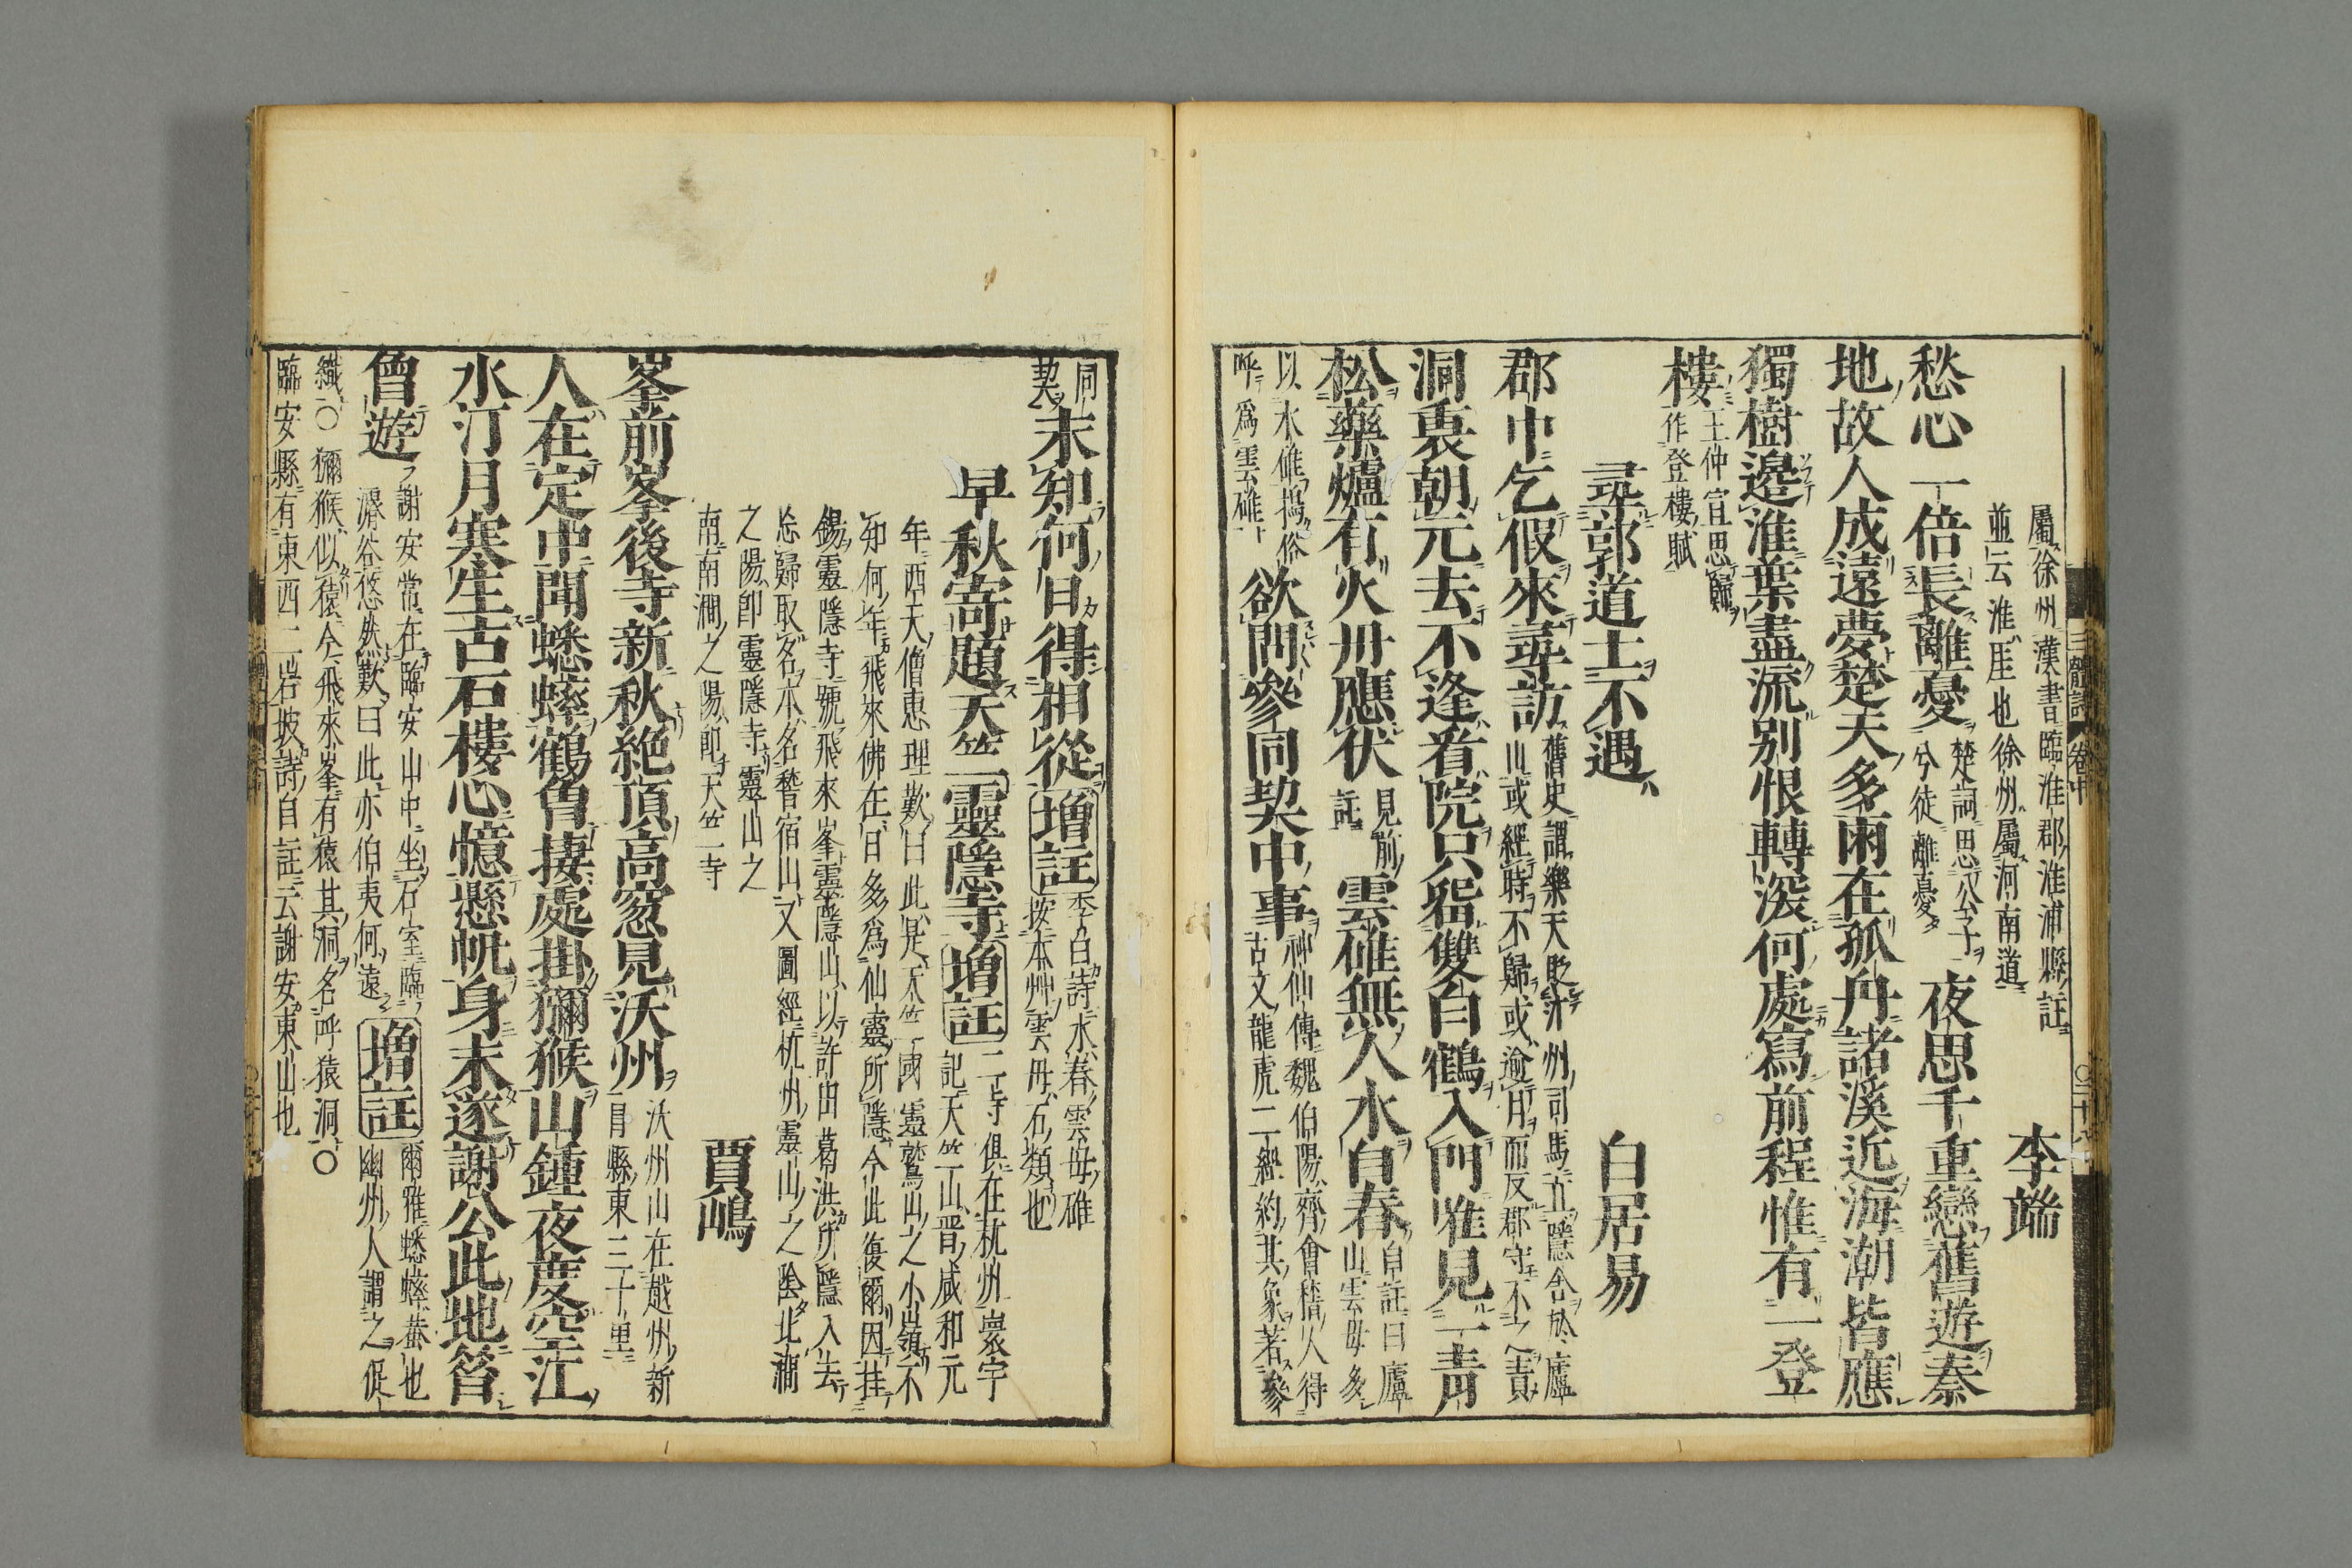 屬徐州漢書臨淮郡淮浦縣註
並云淮厓也徐州屬河南道
李端
愁心一倍長離憂
楚詞思公子
兮徒離憂
夜思千重戀舊遊秦
地故人成遠夢楚天多雨在孤舟諸溪近海潮皆應
獨樹邊淮葉盡流別恨轉深何處寫前程惟有一登
樓
王仲宣思歸
作登樓賦
尋郭道士不遇
白居易
郡中乞假來尋訪
舊史謂樂天貶江州司馬立隱舍於廬
山或經時不歸或逾月而反郡守不之責
洞裏朝元去不逢看院只留雙白鶴入門唯見一青
松藥爐有火丹應伏
見前
註
雲碓無人水自舂
自註曰廬
山雲母多
以水碓搗俗
呼爲雲碓
欲問參同契中事
神仙傳魏伯陽齊會稽人得
古文龍虎二經約其象著參
同
契
未知何日得相從
增註
李白詩水舂雲母碓
按本艸雲母石類也
早秋寄題天竺靈隱寺
增註
二寺俱在杭州寰宇
記天竺山晋咸和元
年西天僧惠理歎曰此是天竺國靈鷲山之小嶺不
知何年飛來佛在日多爲仙靈所隱今此復爾因挂
錫靈隱寺號飛來峯靈隱山以許由葛洪所隱入去
忘歸取名本名稽宿山又圖經杭州靈山之陰北澗
之陽卽靈隱寺靈山之
南南澗之陽卽天竺寺
賈嶋
峯前峯後寺新秋絶頂高窻見沃州
沃州山在越州新
昌縣東三十里
人在定中聞蟋蟀鶴曾捿處掛獼猴山鐘夜度空江
水汀月寒生古石樓心憶懸帆身未遂謝公此地昔
曾遊
謝安常在臨安山中坐石室臨
濬谷悠然歎曰此亦伯夷何遠
增註
爾雅蟋蟀蛬也
幽州人謂之促
織○獼猴似猿今飛來峯有猿其洞名呼猿洞○
臨安縣有東西二岩坡詩自註云謝安東山也
三體詩
卷中